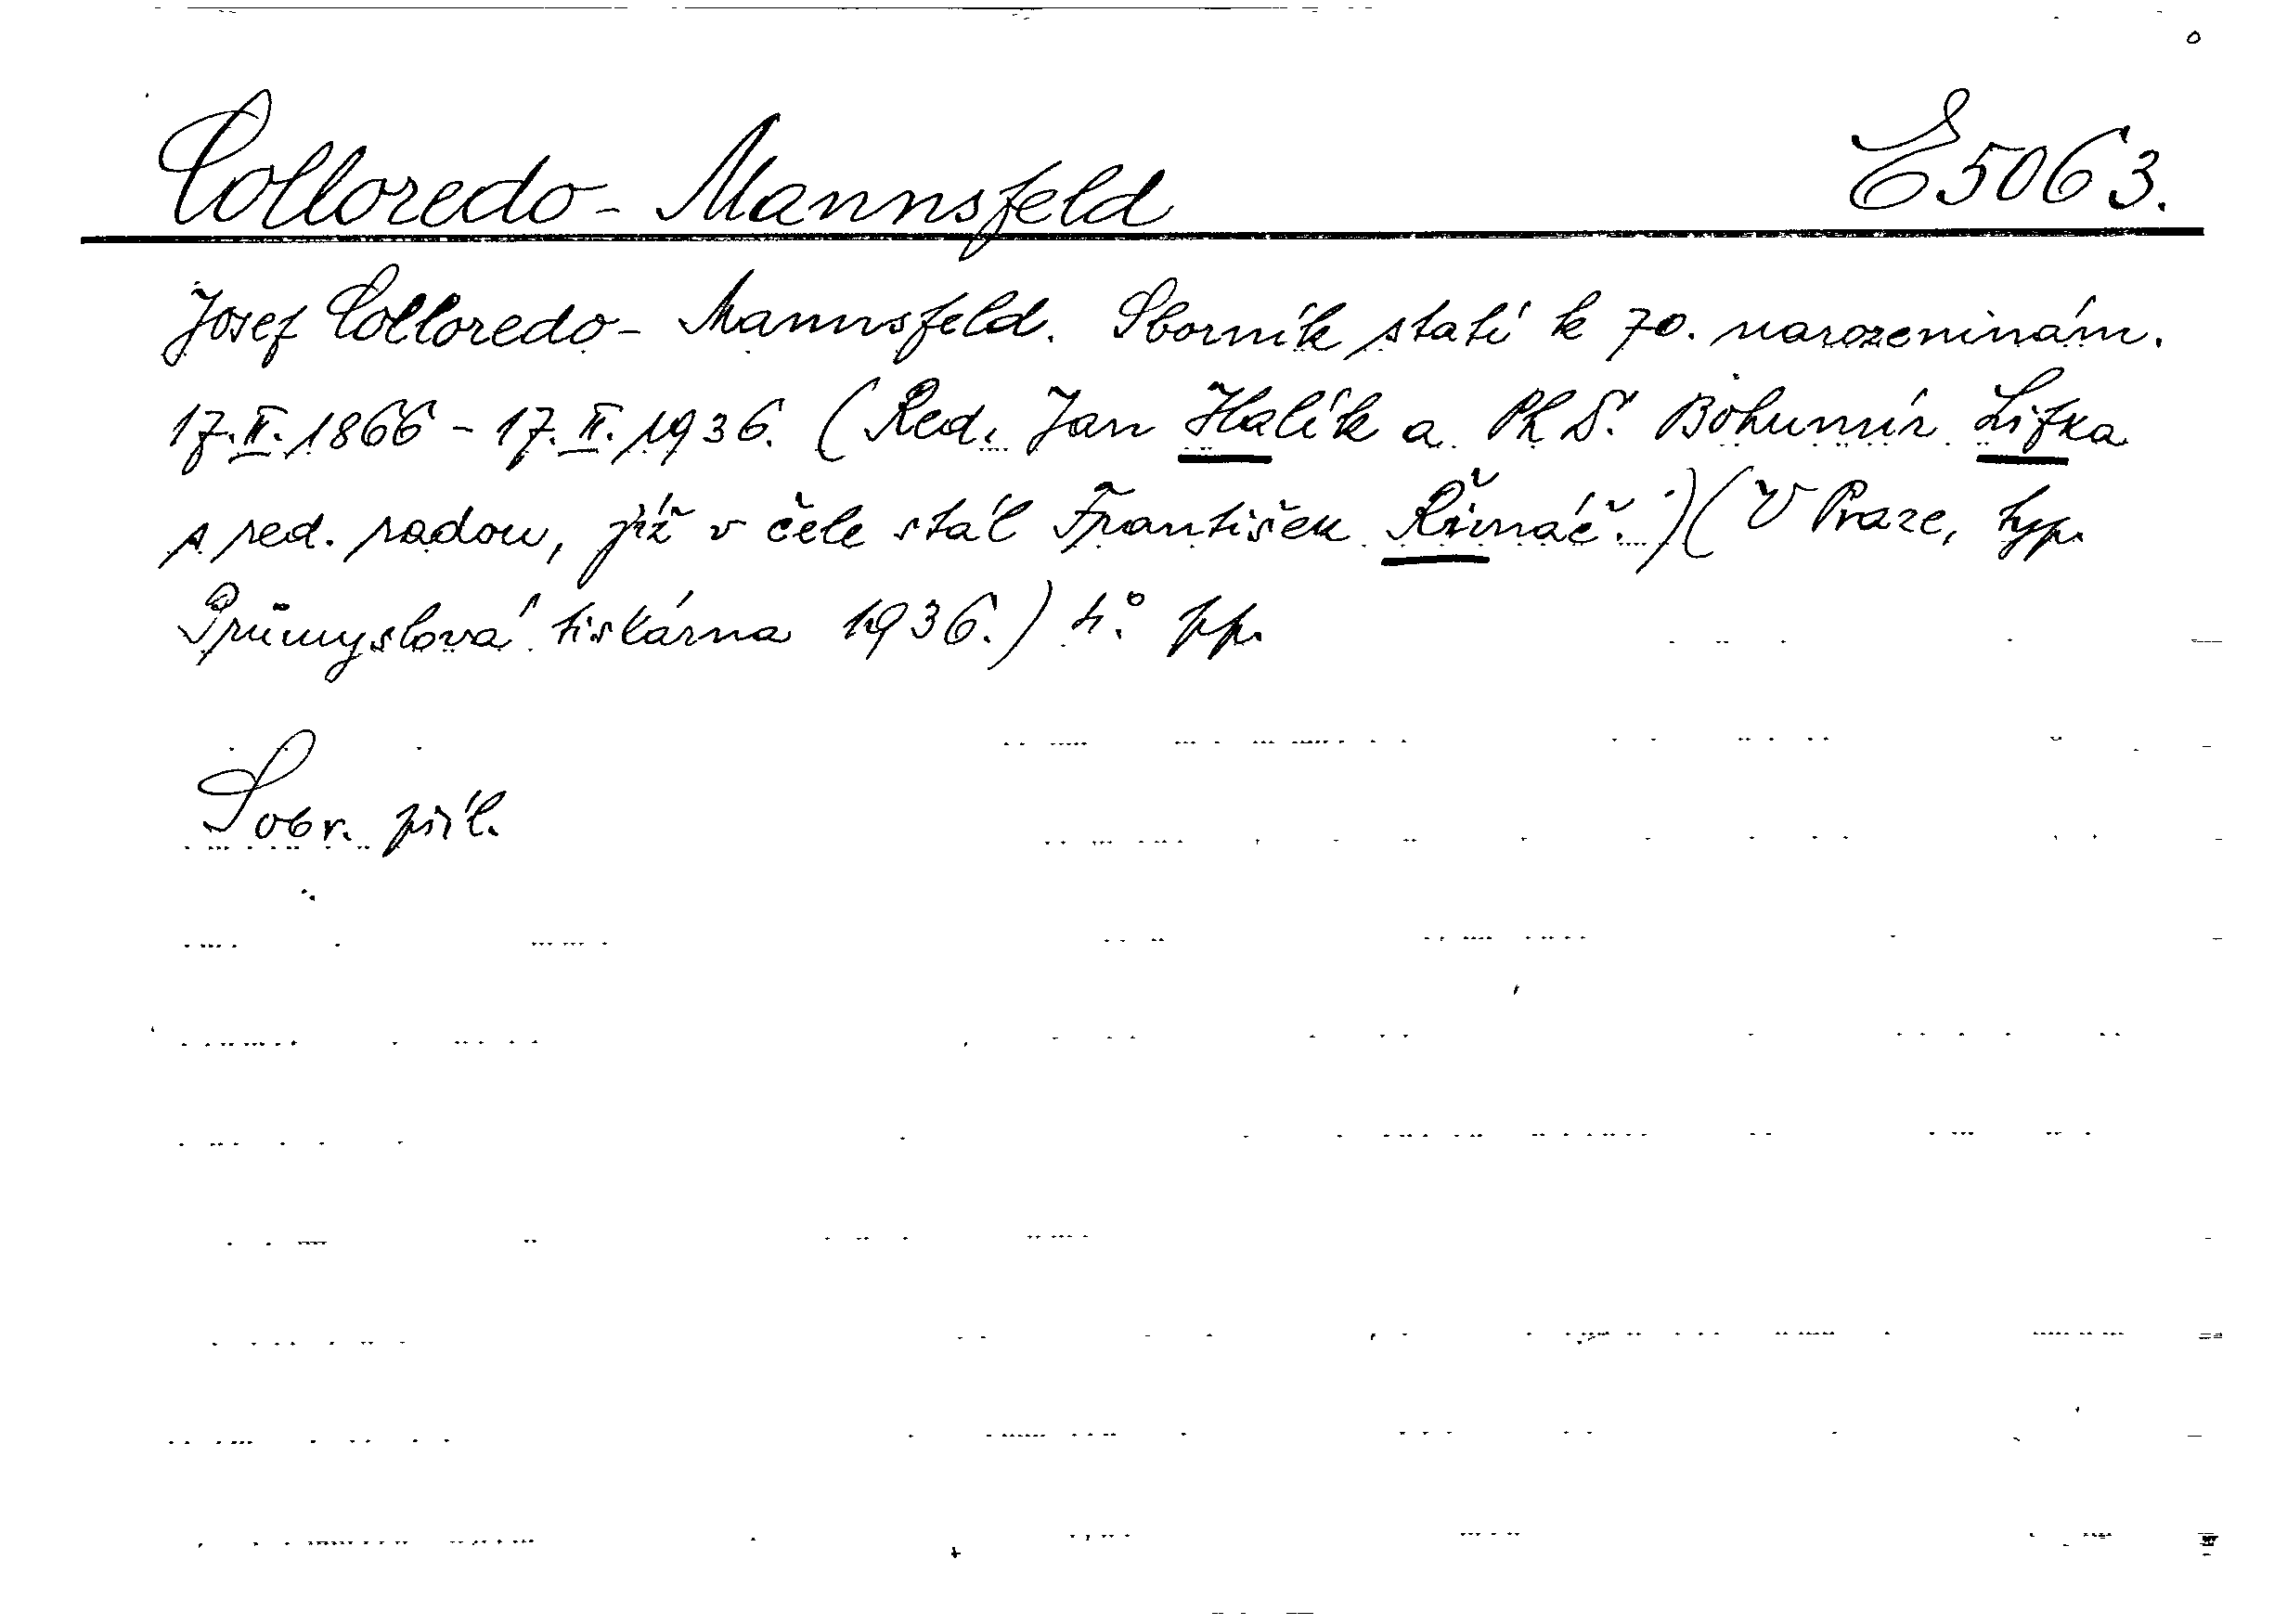 Colloredo-Mannsfeld E5063.
Josef Colloredo-Mannsfeld. Sborník statí k 70. narozeninám.
17.II.1866 - 17.II.1936. (Red. Jan Halík a PhDr. Bohumír Lifka
s red. radou, jíž v čele stál František Řimnáč.)(V Praze, typ.
Průmyslová tiskárna 1936.) 4.° pp.
S obr. příl.